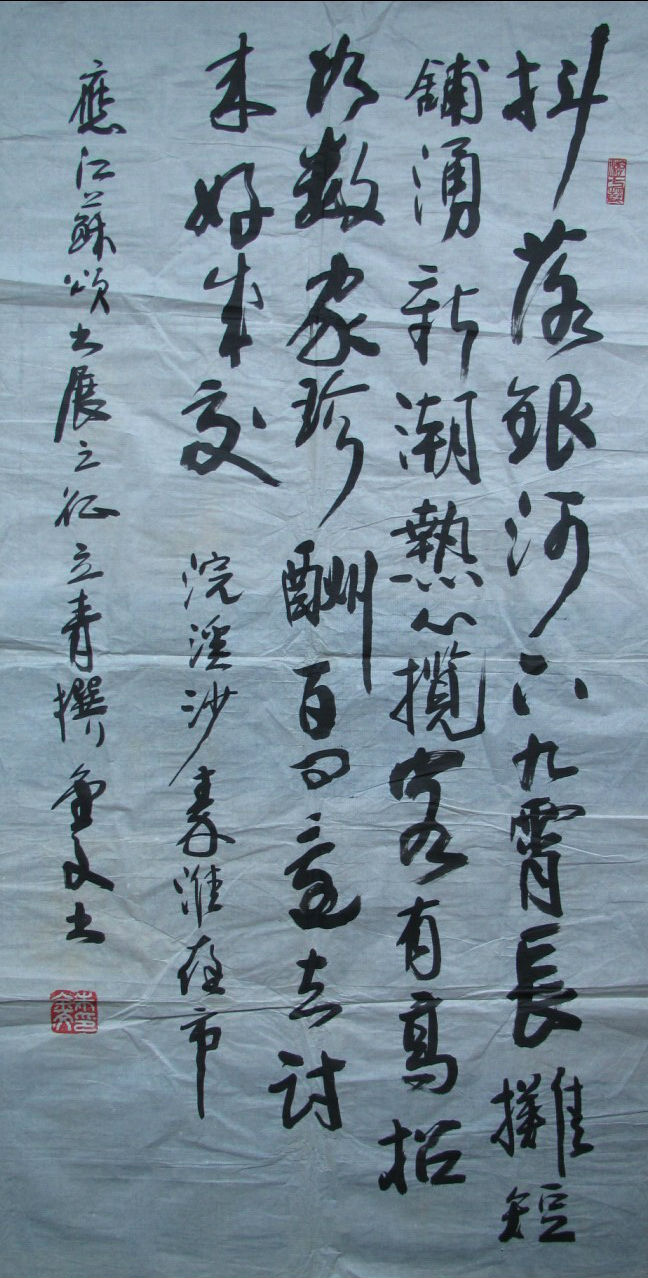 抖落銀河下九霄長攤短
舖湧新潮熱心攬客有高招
如數家珍酬百問還去討
來好成交 浣溪沙秦淮夜市
應江蘇頌书展之征立青撰金文书